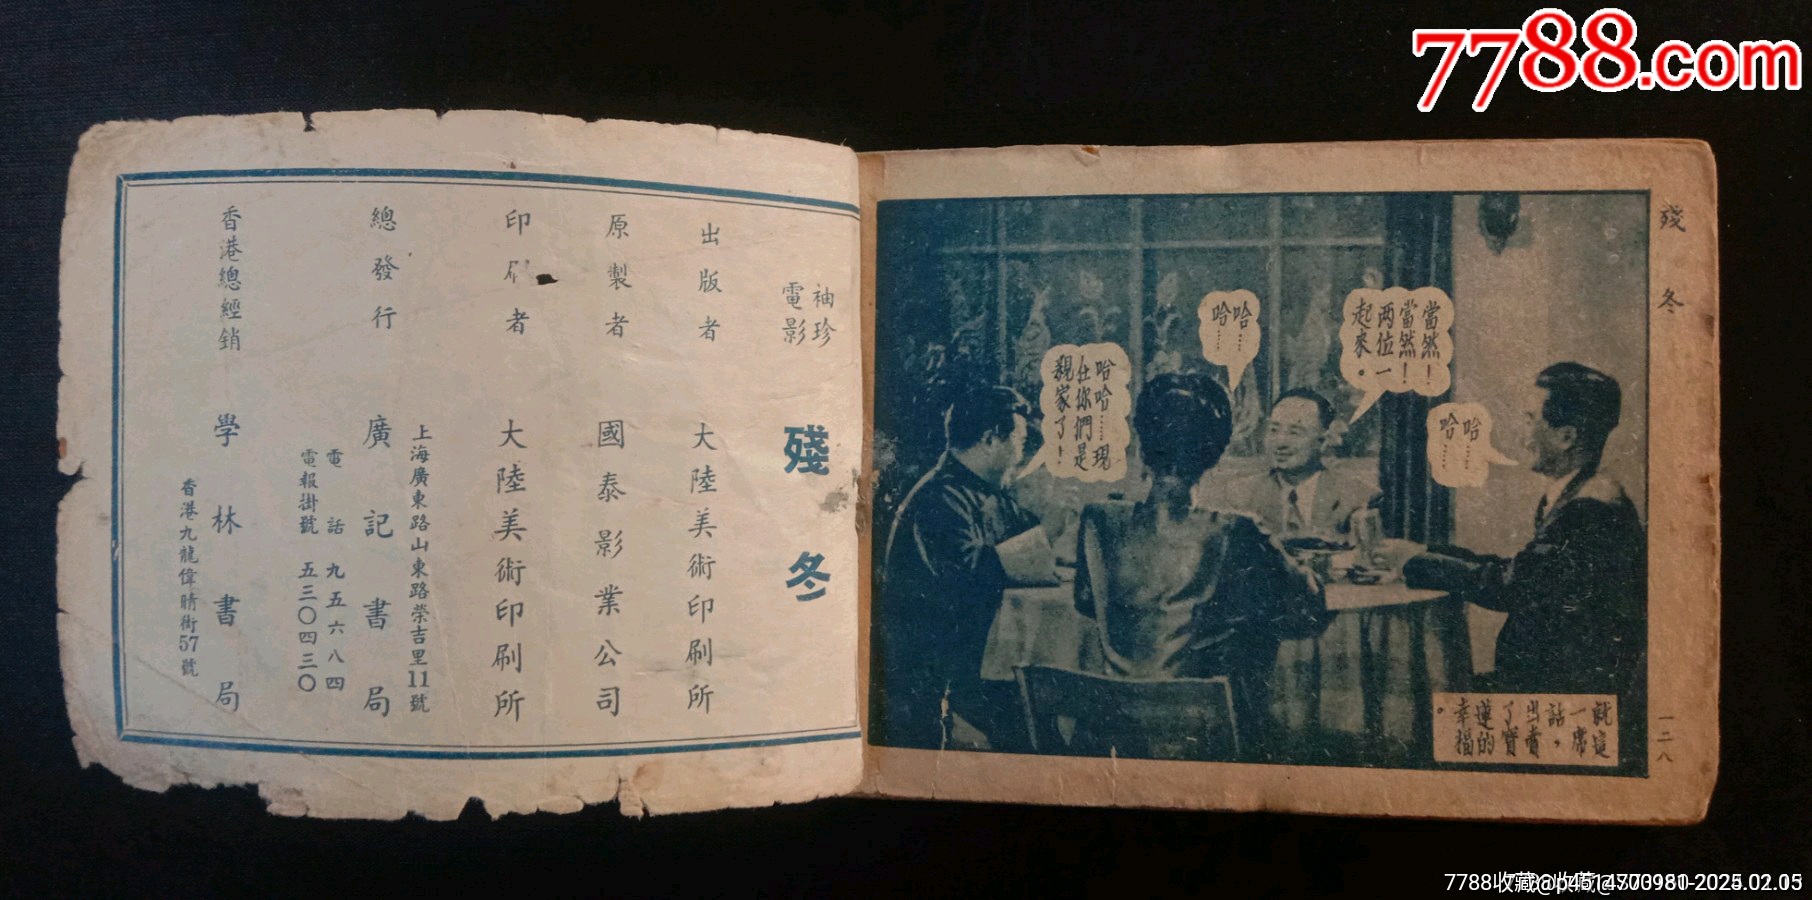 7788.com
袖珍
電影
殘冬
出版者 大陸美術印刷所
原製者 國泰影業公司
印刷者 大陸美術印刷所
總發行 廣記書局
上海廣東路山東路榮吉里11號
電話 九五六八四
電報掛號 五三〇四三〇
香港總經銷 學林書局
香港九龍偉晴街57號
殘冬
一二八
當然！
當然！
两位一
起來。
哈……
哈……
哈……
哈……
哈哈……現
在你們是
親家了！
就這
一席
話，
出賣
了寶
蓮的
幸福
。
7788收藏
2025.02.05